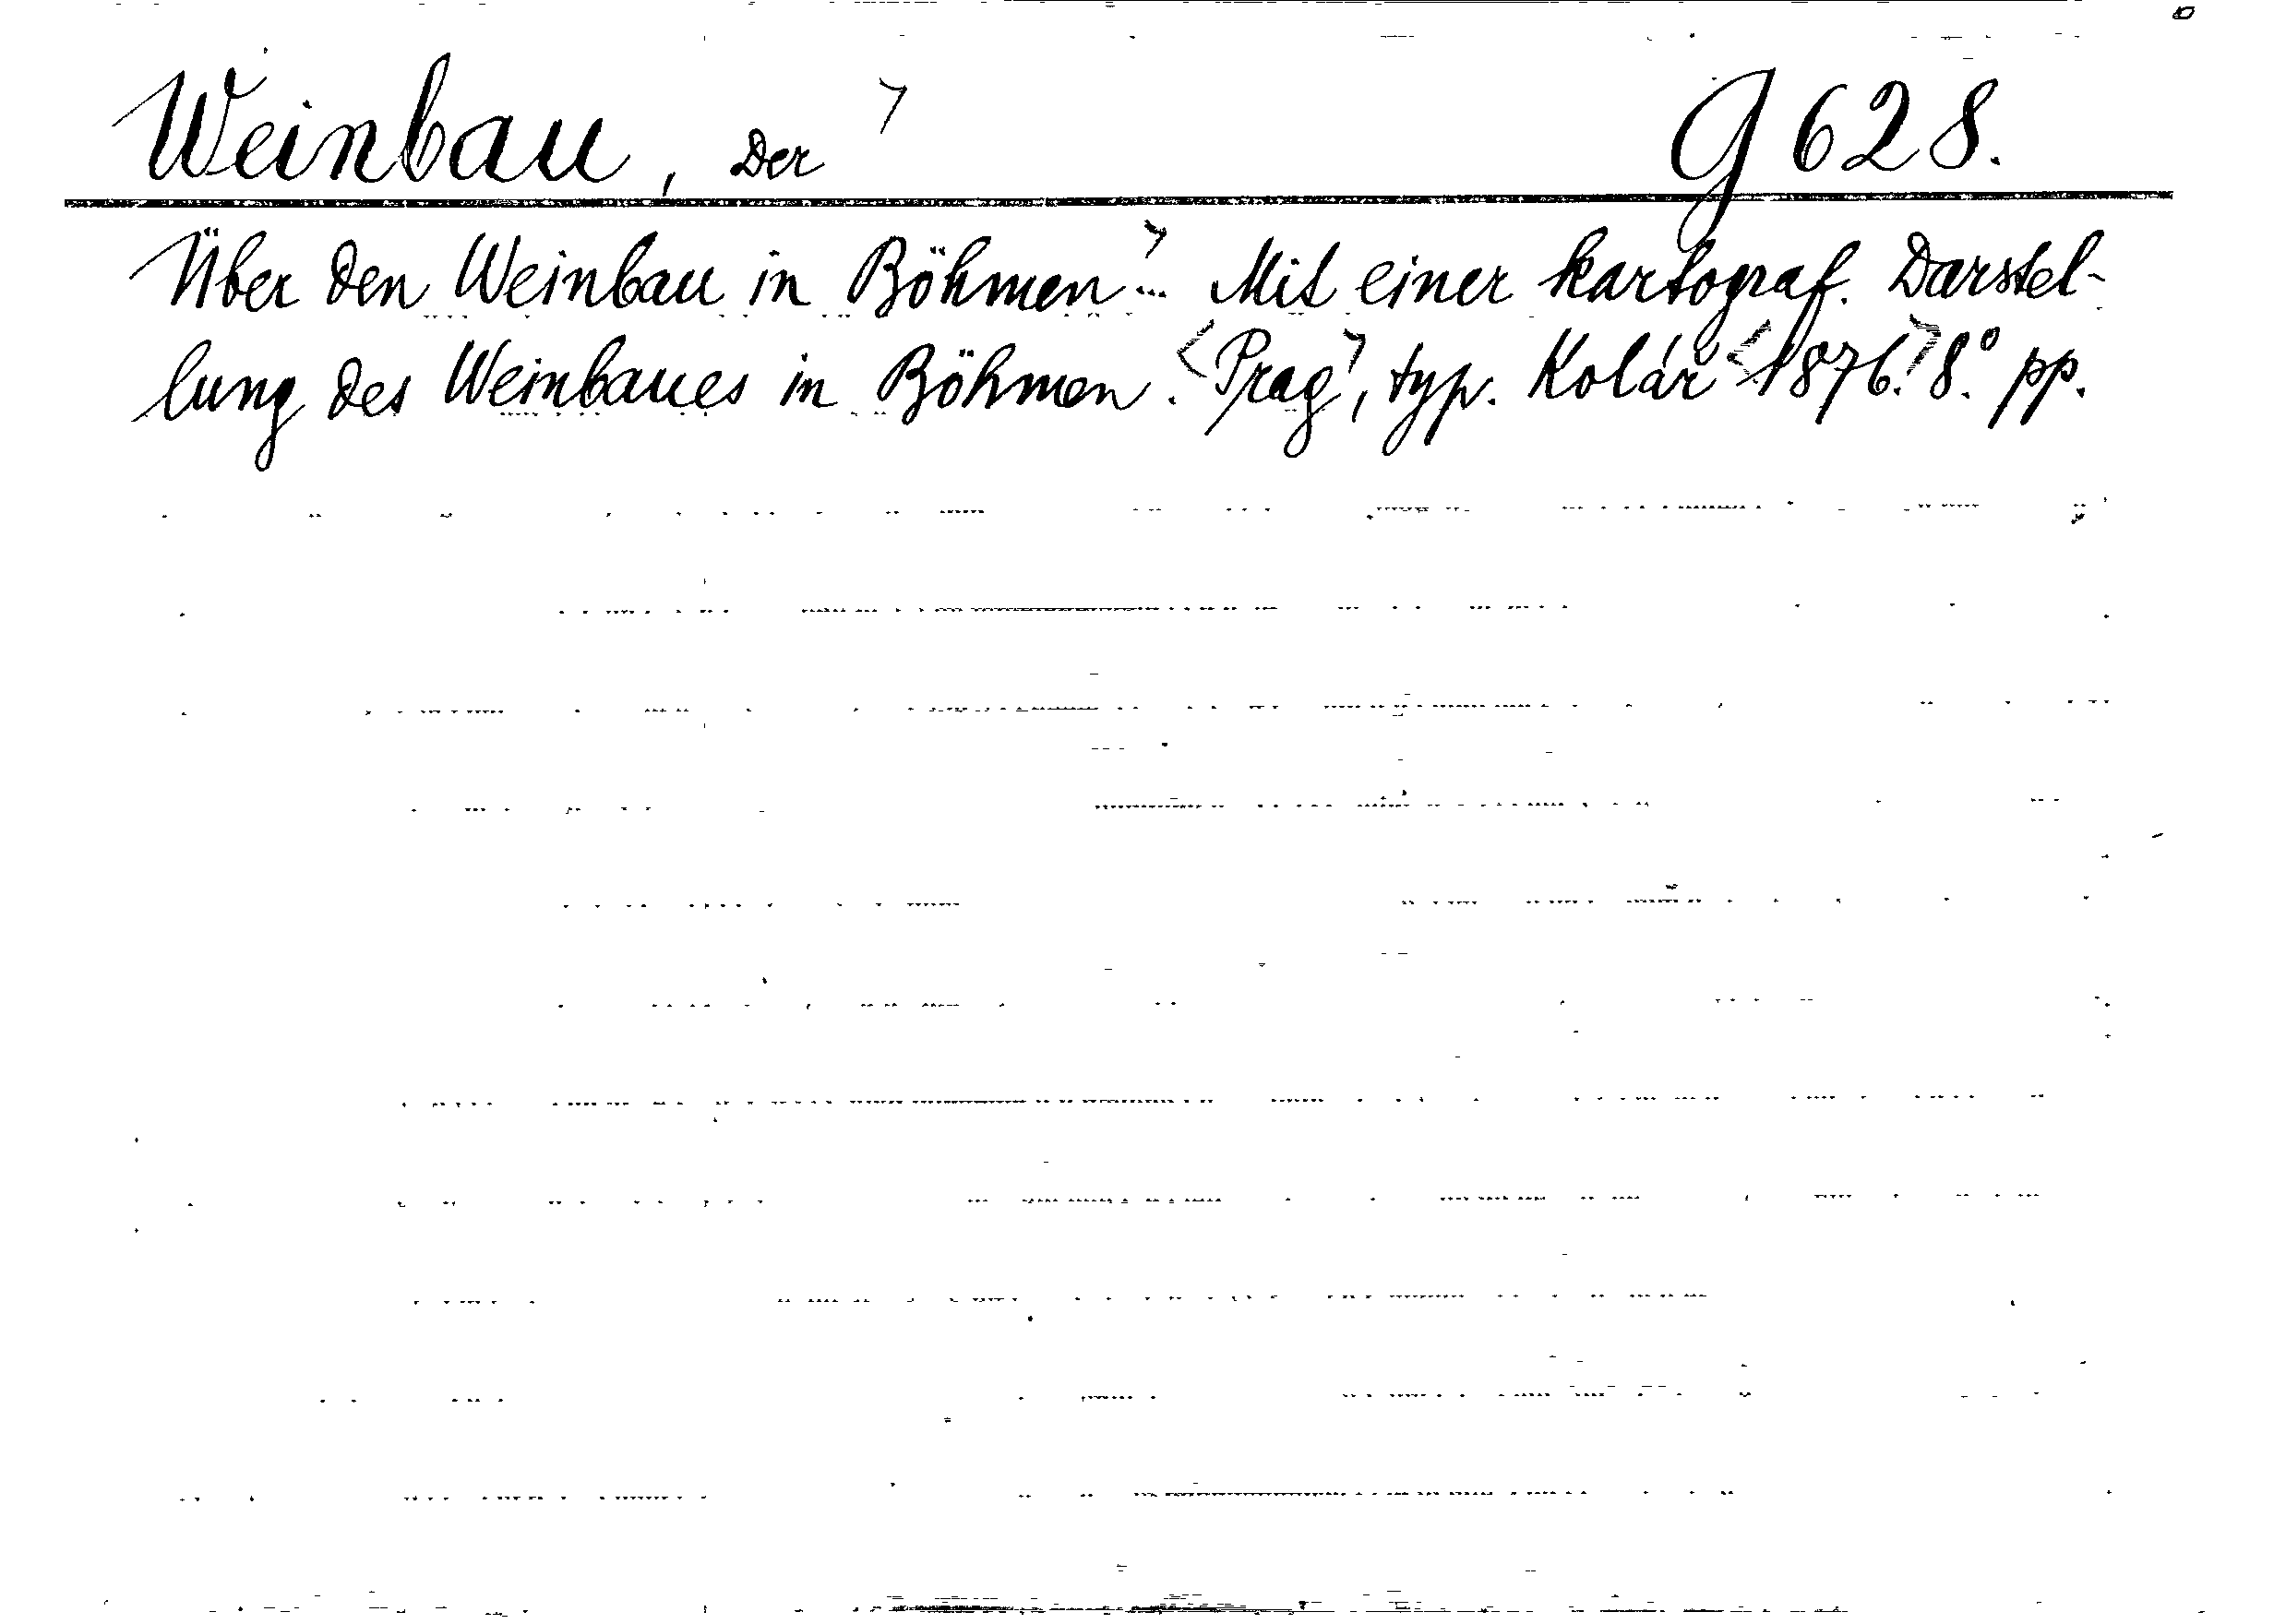 Weinbau, Der G 628.
Über den Weinbau in Böhmen... Mit einer kartograf. Darstel-
lung des Weinbaues in Böhmen. <Prag>, typ. Kolář <1876.> 8.° pp.